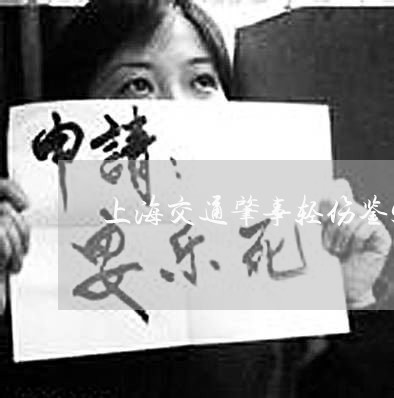 申請：
上海交通肇事轻伤鉴
安乐死